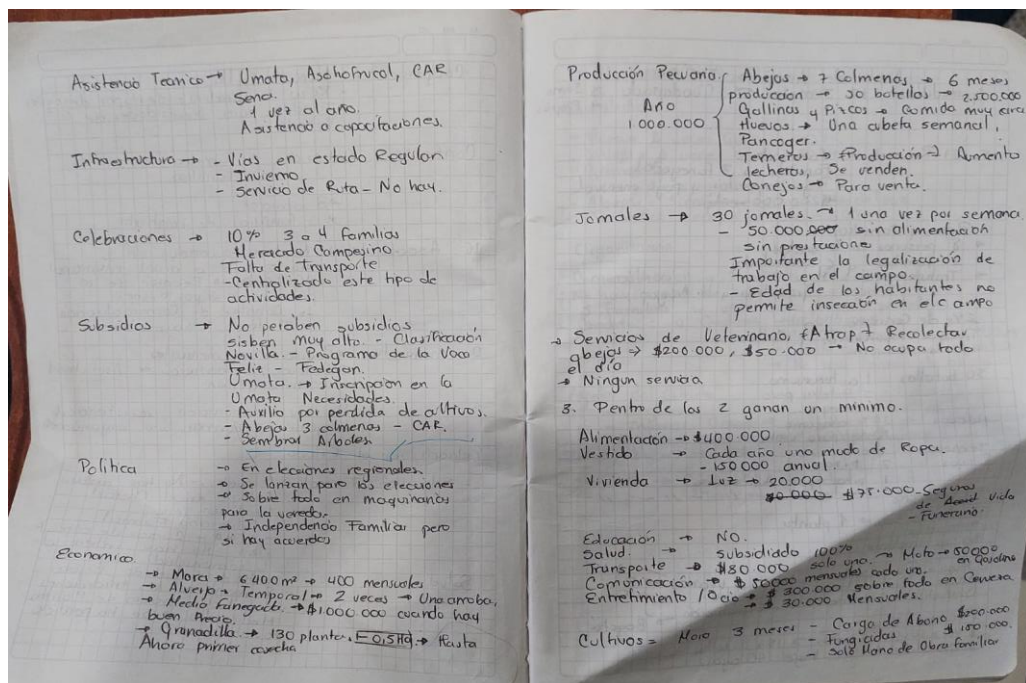 Asistencia Tecnica → Umata, Asohofrucol, CAR
Sena.
1 vez al año.
Asistencia a capacitaciones.
Infraestructura → - Vías en estado Regular
- Invierno
- Servicio de Ruta - No hay.
Celebraciones → 10% 3 a 4 familias
Mercado Campesino
Falta de Transporte
- Centralizado este tipo de
actividades.
Subsidios → No perciben subsidios
sisben muy alto. - Clasificación
Novilla. - Programa de la Vaca
Feliz - Fedegan.
Umata. → Inscripcion en la
Umata Necesidades.
- Auxilio por perdida de cultivos.
- Abejas 3 colmenas - CAR.
- Sembrar Arboles
Politica → En elecciones regionales.
→ Se lanzan para las elecciones
→ Sobre todo en maquinarias
para la vereda.
→ Independencia Familiar pero
si hay acuerdos
Economico.
→ Mora → 6400 m² → 400 mensuales
→ Alverja → Temporal → 2 veces → Una arroba,
→ Media Fanegada. → $1.000.000 cuando hay
buen Precio.
→ Granadilla. → 130 plantas. = 0,5Ha → Hasta
Ahora primer cosecha
Producción Pecuaria. Abejas → 7 Colmenas → 6 meses
producción → 30 botellas → 2.500.000
Año Gallinas y Pizcos → Comida muy cara
1000.000 Huevos → Una cubeta semanal,
Pancoger.
Terneros → Producción → Aumento
lecheros, Se venden.
Conejos → Para venta.
Jornales → 30 jornales. → 1 una vez por semana
- 50.000 sin alimentación
sin prestacione
Importante la legalización de
trabajo en el campo.
- Edad de los habitantes no
permite inseccion en el campo
→ Servicios de Veterinario, (Atrap) Recolectar
abejas → $200 000, $50.000 → No ocupa todo
el día
→ Ningun servicio
3. Dentro de los 2 ganan un minimo.
Alimentación → $400.000
Vestido → Cada año una muda de Ropa.
- 150 000 anual.
Vivienda → Luz → 20.000
$75.000 - Seguros
de vida
- Funerario.
Educación → NO.
Salud. → subsidiado 100%
Transporte → $80.000 solo uno. → Moto → 50000
en Gasolina
Comunicación → $50000 mensuales cada uno.
Entretimiento / Ocio → $300.000 sobre todo en Cerveza
→ $30.000 Mensuales.
Cultivos = Mora 3 meses - Carga de Abono $200.000
- Fungicidas $150.000.
- Solo Mano de Obra familiar